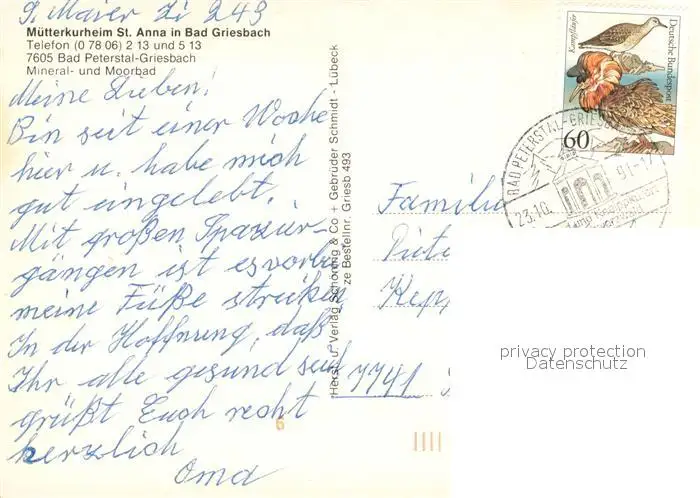 J. Maier Zi 243
Mütterkurheim St. Anna in Bad Griesbach
Telefon (0 78 06) 2 13 und 5 13
7605 Bad Peterstal-Griesbach
Mineral- und Moorbad
Meine Lieben!
Bin seit einer Woche
hier u. habe mich
gut eingelebt.
Mit großen Spazier-
gängen ist es vorbei
meine Füße streiken
In der Hoffnung, daß
Ihr alle gesund seid
grüßt Euch recht
herzlich
Oma
Herst. u. Verlag Schöning & Co + Gebrüder Schmidt - Lübeck
ze Bestellnr. Griesb 493
Kampfläufer
Deutsche Bundespost
60
BAD PETERSTAL-GRIES
23.10. 91-17
Familie
7741
privacy protection
Datenschutz
6